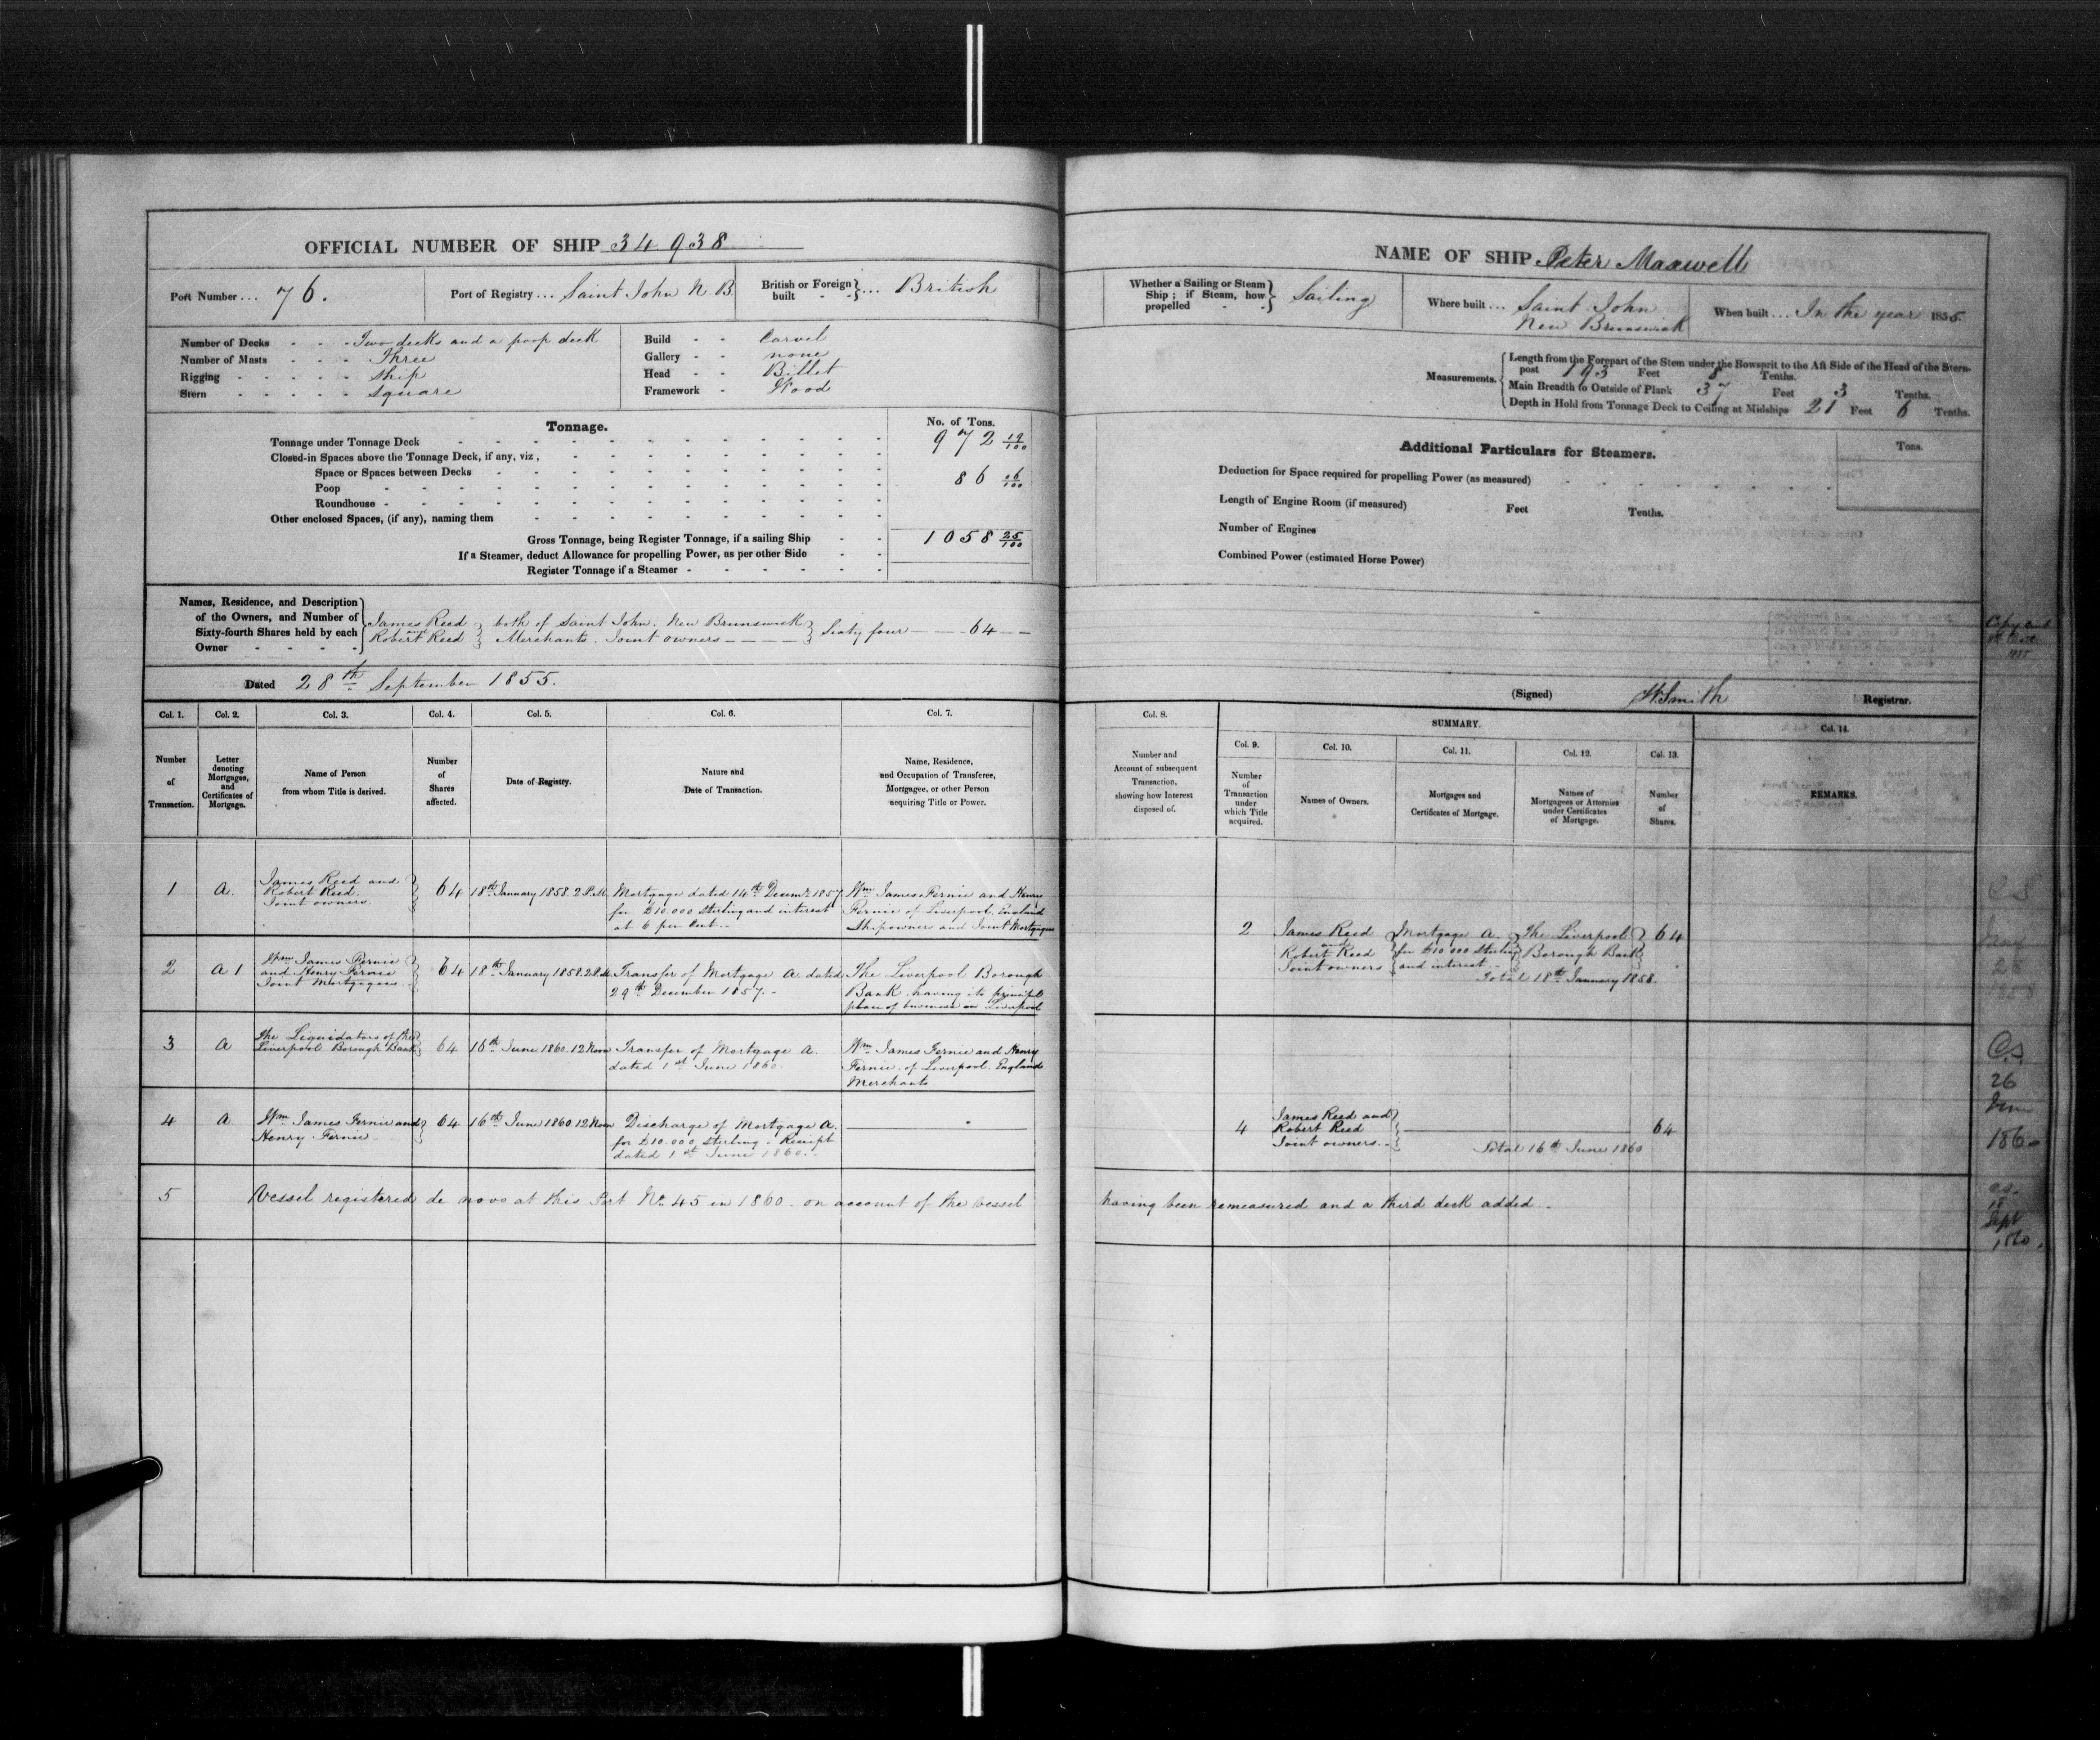 OFFICIAL NUMBER OF SHIP 34938
Port Number ... 76.
Port of Registry ... Saint John N. B.
British or Foreign built } ... British
Number of Decks - - - Two decks and a poop deck
Number of Masts - - - Three
Rigging - - - - - Ship
Stern - - - - - Square
Build - - Carvel
Gallery - - none
Head - - Billet
Framework - Wood
Tonnage.
No. of Tons.
Tonnage under Tonnage Deck 972 19/100
Closed-in Spaces above the Tonnage Deck, if any, viz.,
Space or Spaces between Decks
Poop 86 06/100
Roundhouse
Other enclosed Spaces, (if any), naming them
Gross Tonnage, being Register Tonnage, if a sailing Ship 1058 25/100
If a Steamer, deduct Allowance for propelling Power, as per other Side
Register Tonnage if a Steamer
Names, Residence, and Description
of the Owners, and Number of
Sixty-fourth Shares held by each
Owner
James Reed and Robert Reed } both of Saint John. New Brunswick
Merchants. Joint owners } Sixty four — 64 —
Dated 28th September 1855.
Col. 1. Col. 2. Col. 3. Col. 4. Col. 5. Col. 6. Col. 7.
Number of Transaction.
Letter denoting Mortgages, and Certificates of Mortgage.
Name of Person from whom Title is derived.
Number of Shares affected.
Date of Registry.
Nature and Date of Transaction.
Name, Residence, and Occupation of Transferee, Mortgagee, or other Person acquiring Title or Power.
1 A. James Reed and Robert Reed. Joint owners. } 64
18th January 1858. 2 P.M.
Mortgage dated 14th Decemr. 1857
for £10.000 Sterling and interest
at 6 per Cent.
Wm James Fernie and Henry
Fernie of Liverpool. England
Shipowners and Joint Mortgagees
2 A 1 Wm James Fernie and Henry Fernie Joint Mortgagees } 64
18th January 1858. 2 P.M.
Transfer of Mortgage A. dated
29th December 1857.
The Liverpool Borough
Bank. having its principal
place of business in Liverpool
3 A The Liquidators of the Liverpool Borough Bank } 64
16th June 1860. 12 Noon
Transfer of Mortgage A.
dated 1st June 1860.
Wm James Fernie and Henry
Fernie. of Liverpool. England
Merchants
4 A Wm James Fernie and Henry Fernie } 64
16th June 1860. 12 Noon
Discharge of Mortgage A.
for £10.000 sterling. Receipt
dated 1st June 1860.
5 Vessel registered de novo at this Port No 45 in 1860. on account of the vessel
NAME OF SHIP Peter Maxwell
Whether a Sailing or Steam Ship; if Steam, how propelled } Sailing
Where built ... Saint John New Brunswick
When built ... In the year 1855.
Measurements.
Length from the Forepart of the Stem under the Bowsprit to the Aft Side of the Head of the Stern-
post 193 Feet 8 Tenths.
Main Breadth to Outside of Plank 37 Feet 3 Tenths.
Depth in Hold from Tonnage Deck to Ceiling at Midships 21 Feet 6 Tenths.
Additional Particulars for Steamers.
Tons.
Deduction for Space required for propelling Power (as measured)
Length of Engine Room (if measured) Feet Tenths.
Number of Engines
Combined Power (estimated Horse Power)
(Signed) W. Smith Registrar.
Col. 8.
Number and Account of subsequent Transaction, showing how Interest disposed of.
SUMMARY.
Col. 9. Col. 10. Col. 11. Col. 12. Col. 13.
Number of Transaction under which Title acquired.
Names of Owners.
Mortgages and Certificates of Mortgage.
Names of Mortgagees or Attornies under Certificates of Mortgage.
Number of Shares.
Col. 14.
REMARKS.
2 James Reed and Robert Reed Joint owners
Mortgage A. for £10.000 Sterling and interest
The Liverpool Borough Bank } 64
Total 18th January 1858.
4 James Reed and Robert Reed Joint owners. } 64
Total 16th June 1860
having been remeasured and a third deck added.
Copy
1855
CS
28
1858
CS
26
June
1860
CS
Sept
1860.